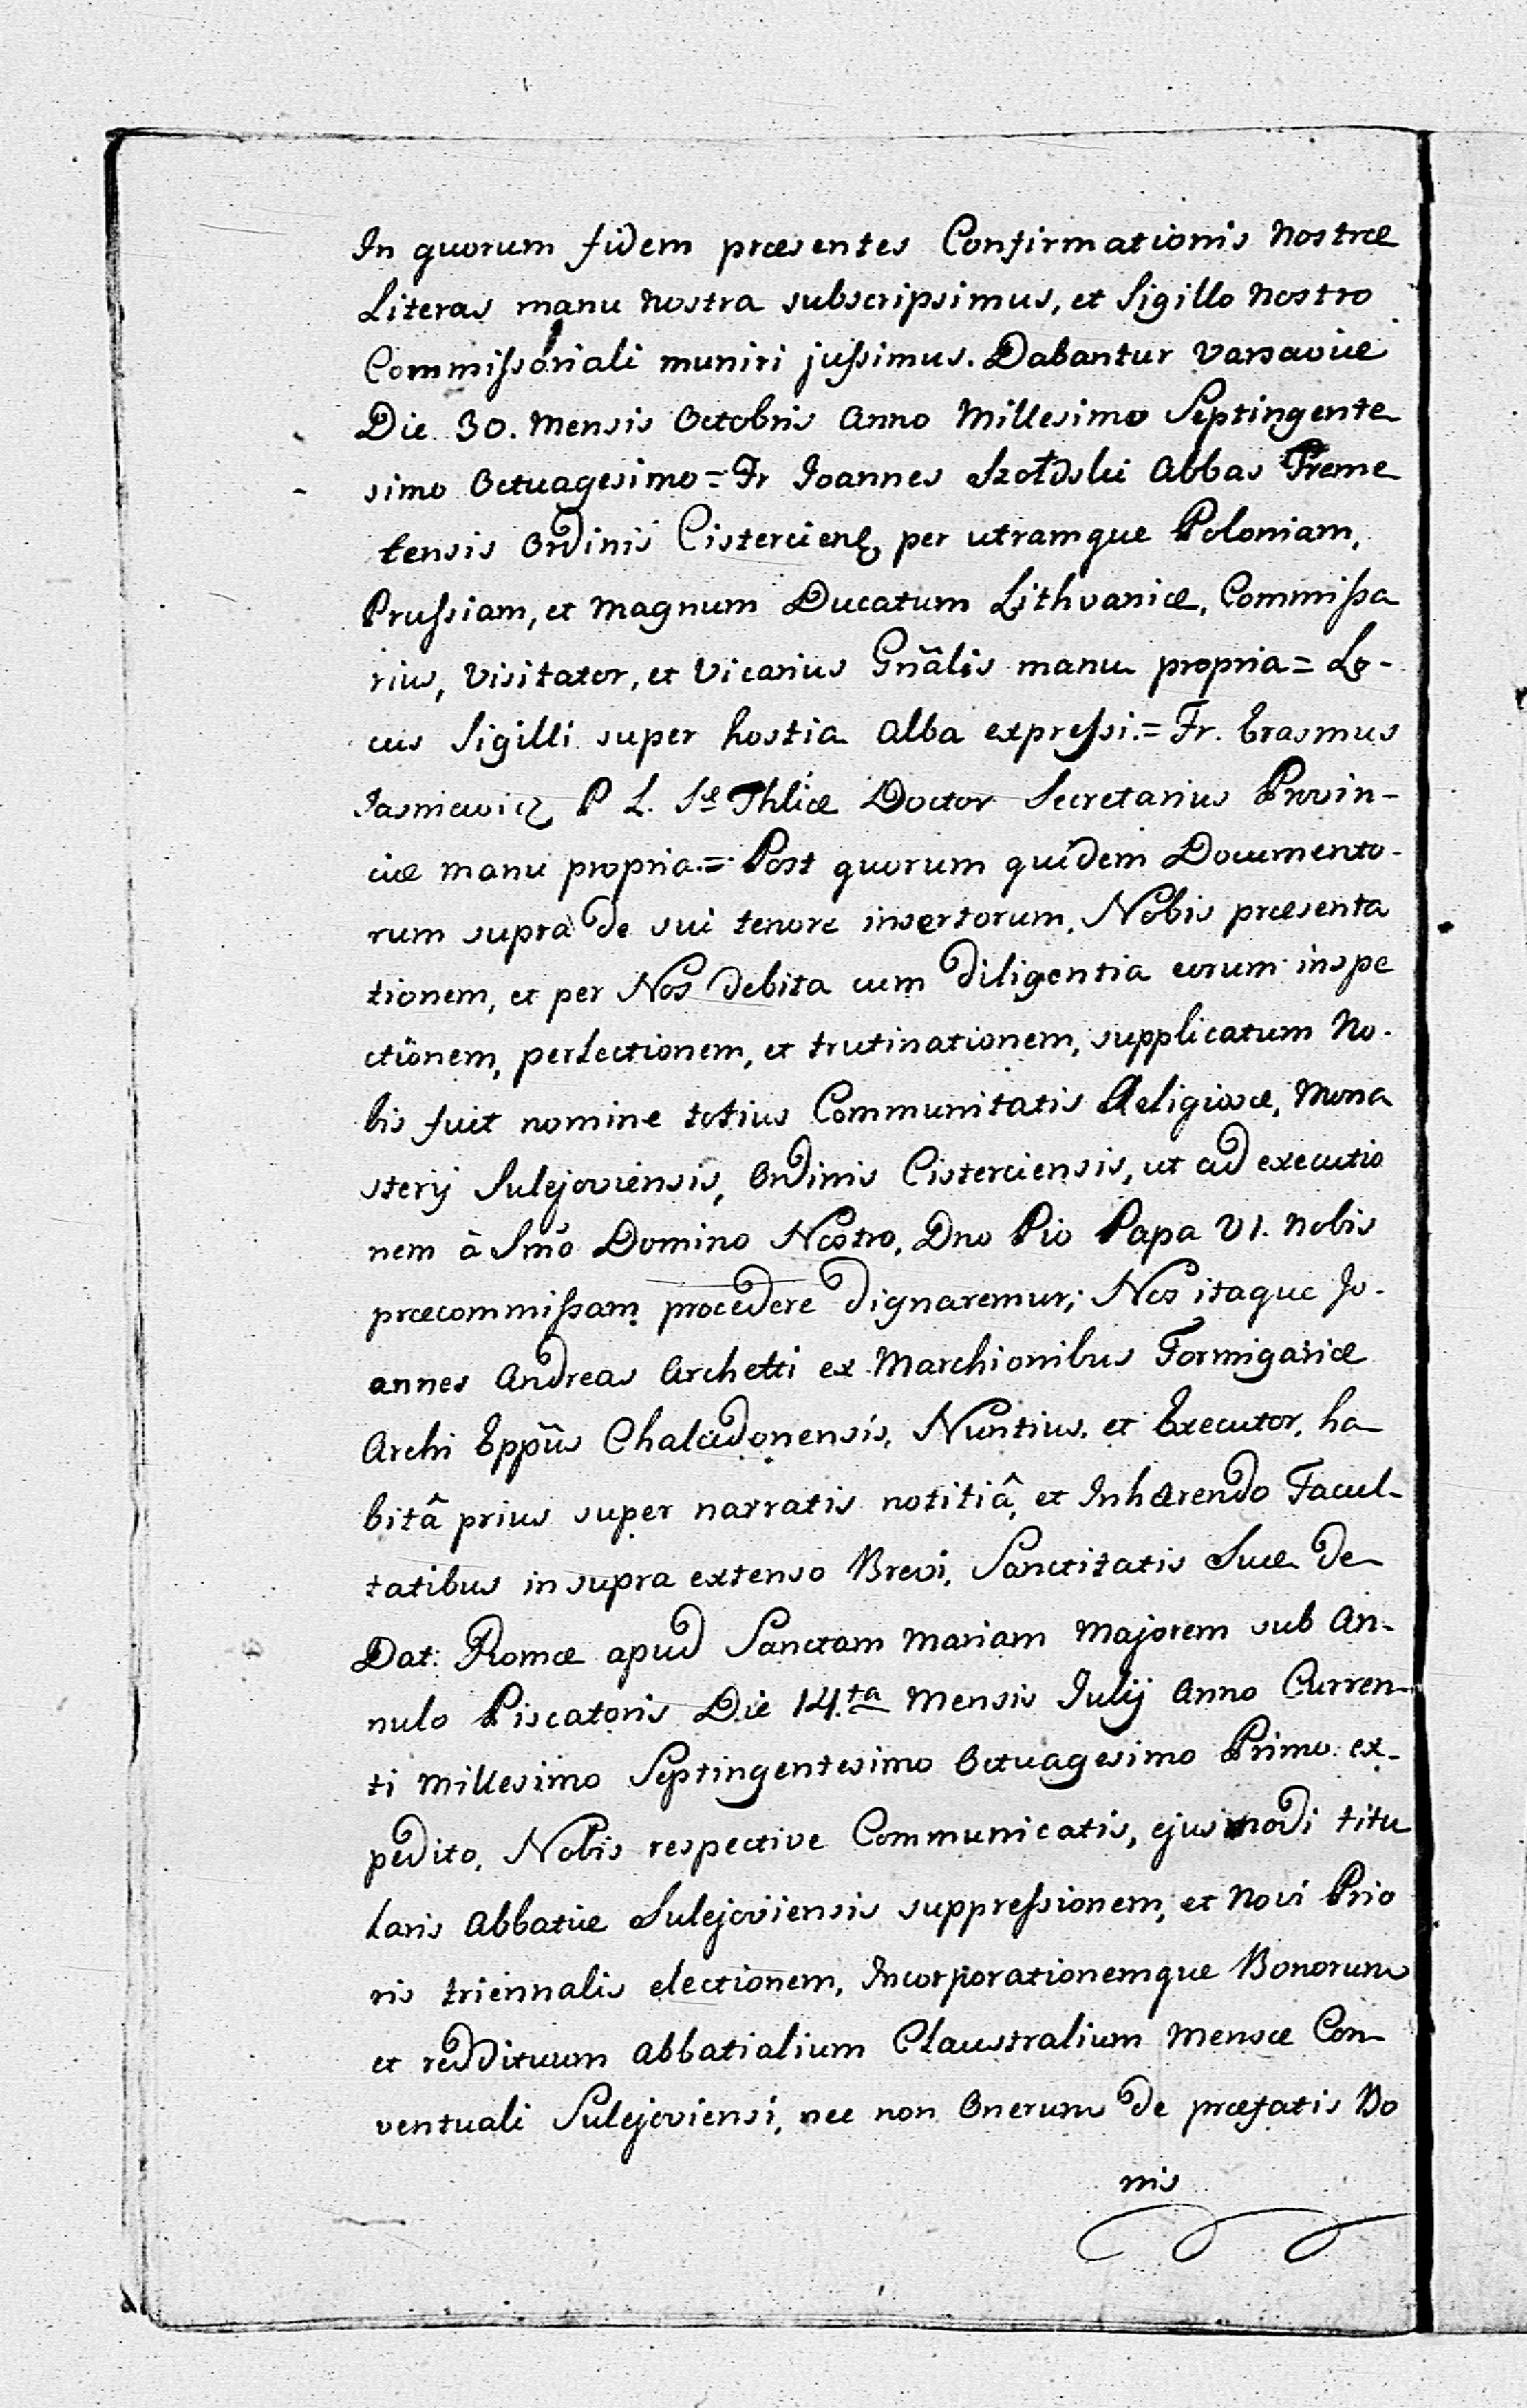 In quorum fidem præsentes Confirmationis Nostræ
Literas manu Nostra subscripsimus, et Sigillo Nostro
Commissoriali muniri jussimus. Dabantur Varsaviæ
Die 30. Mensis Octobris Anno Millesimo Septingente
simo Octuagesimo = Fr Ioannes Szołdski Abbas Preme
tensis Ordinis Cisterciens per utramque Poloniam,
Prussiam, et Magnum Ducatum Lithvaniæ, Commissa
rius, Visitator, et Vicarius Gnãlis manu propria = Lo-
cus Sigilli super hostia Alba expressi. = Fr. Erasmus
Iasniewicz P L. Sæ Thliæ Doctor Secretarius Provin-
ciæ Manu propria. = Post quorum quidem Documento-
rum supra de sui tenore insertorum, Nobis præsenta
tionem, et per Nos debita cum diligentia eorum inspe
ctionem, perlectionem, et trutinationem, supplicatum No-
bis fuit nomine totius Communitatis Religiosæ, Mona
sterij Sulejoviensis, Ordinis Cisterciensis, ut ad executio
nem à Smo Domino Nostro, Dno Pio Papa VI. Nobis
præcommissam procedere dignaremur; Nos itaque Jo-
annes Andreas Archetti ex Marchionibus Formigariæ
Archi Eppũs Chalcedonensis, Nuntius, et Executor, ha
bitâ prius super narratis notitiâ, et Inhærendo Facul-
tatibus in supra extenso Brevi, Sanctitatis Suæ de
Dat: Romæ apud Sanctam Mariam Majorem sub An-
nulo Piscatoris Die 14.ta Mensis Julij Anno Curren-
ti Millesimo Septingentesimo Octuagesimo Primo ex-
pedito, Nobis respective Communicatis, ejusmodi titu
laris Abbatiæ Sulejoviensis suppressionem, et Novi Prio
ris triennalis electionem, Incorporationemque Bonorum
et reddituum Abbatialium Claustralium Mensæ Con
ventuali Sulejoviensi, nec non Onerum de præfatis Bo
nis